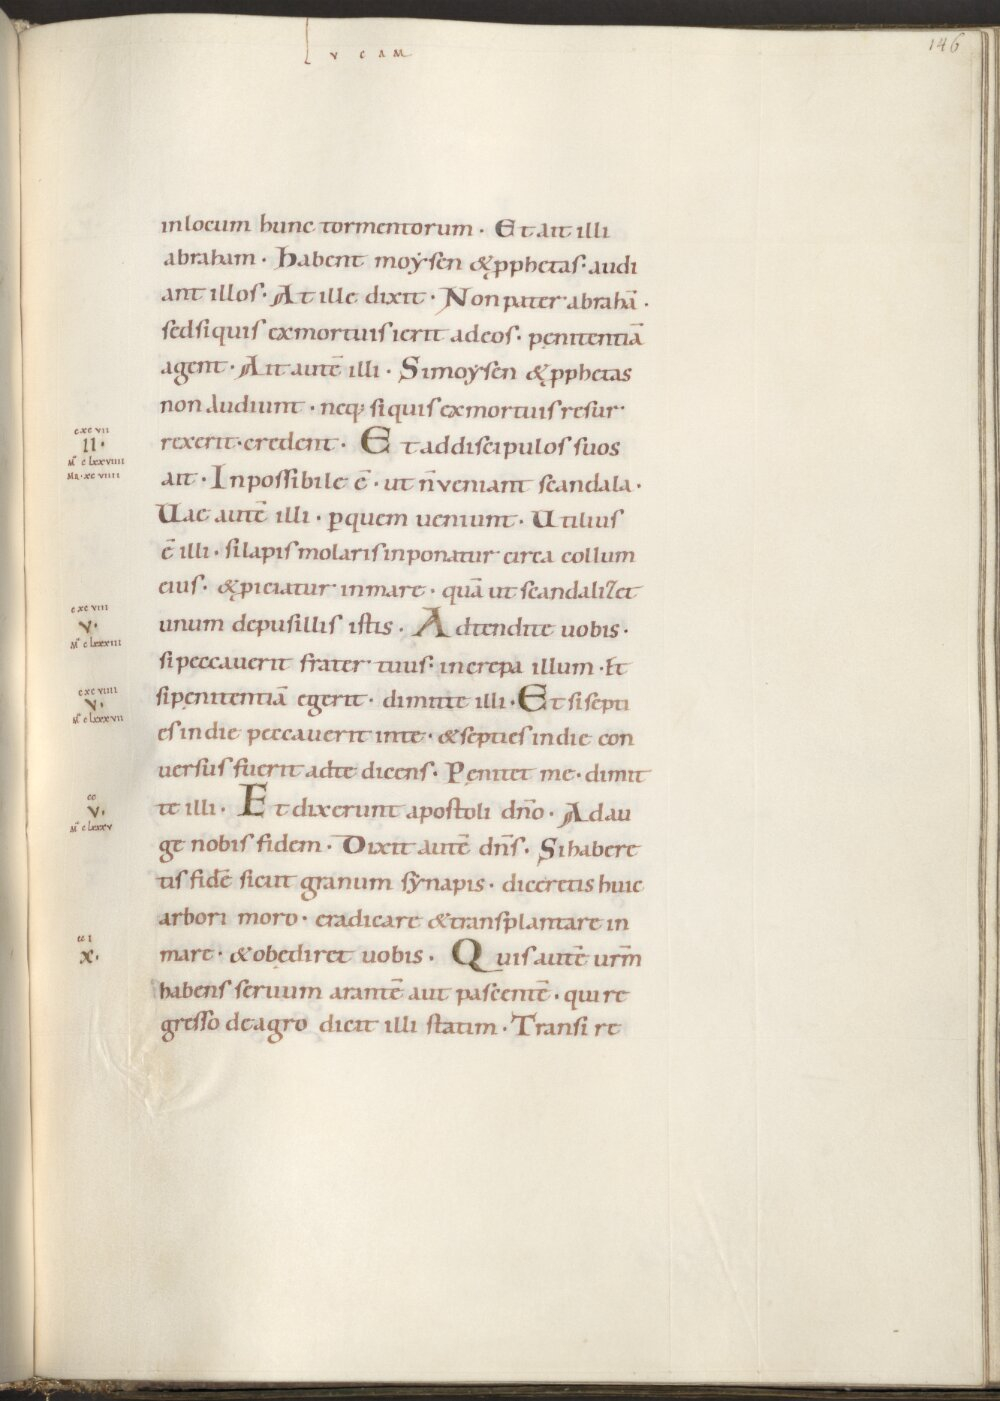 LUCAM
146
inlocum hunc tormentorum · Et ait illi
abraham · Habent moẏsen & ꝓphetas · audi
ant illos · At ille dixit · Non pater abrahā ·
sed siquis exmortuis ierit ad eos · pęnitentiā
agent · Ait autē illi · Si moẏsen & ꝓphetas
non audiunt · neq; siquis exmortuis resur
rexerit · credent · Et addiscipulos suos
ait · Inpossibile ē · ut n̄ veniant scandala ·
Uae autē illi · ꝑquem ueniunt · Utilius
ē illi · silapis molaris inponatur circa collum
eius · & ꝓiciatur inmare · quā ut scandalizet
unum depusillis istis · Adtendite uobis ·
si peccauerit frater tuus · increpa illum · Et
si pęnitentiā egerit · dimitte illi · Et si septi
es in die peccauerit inte · & septies in die con
uersus fuerit adte dicens · Pęnitet me · dimit
te illi · Et dixerunt apostoli dn̄o · Adau
ge nobis fidem · Dixit autē dn̄s · Si habere
tis fidē sicut granum sẏnapis · diceretis huic
arbori moro · eradicare & transplantare in
mare · & obediret uobis · Quis autē ur̄m
habens seruum arantē aut pascentē · qui re
gresso deagro dicit illi statim · Transi re
cxcvii
II·
Mt clxxviiii
Mr·xcviiii
cxcviii
V·
Mt clxxxiii
cxcviiii
V·
Mt clxxxvii
cc
V·
Mt clxxxv
cci
X·